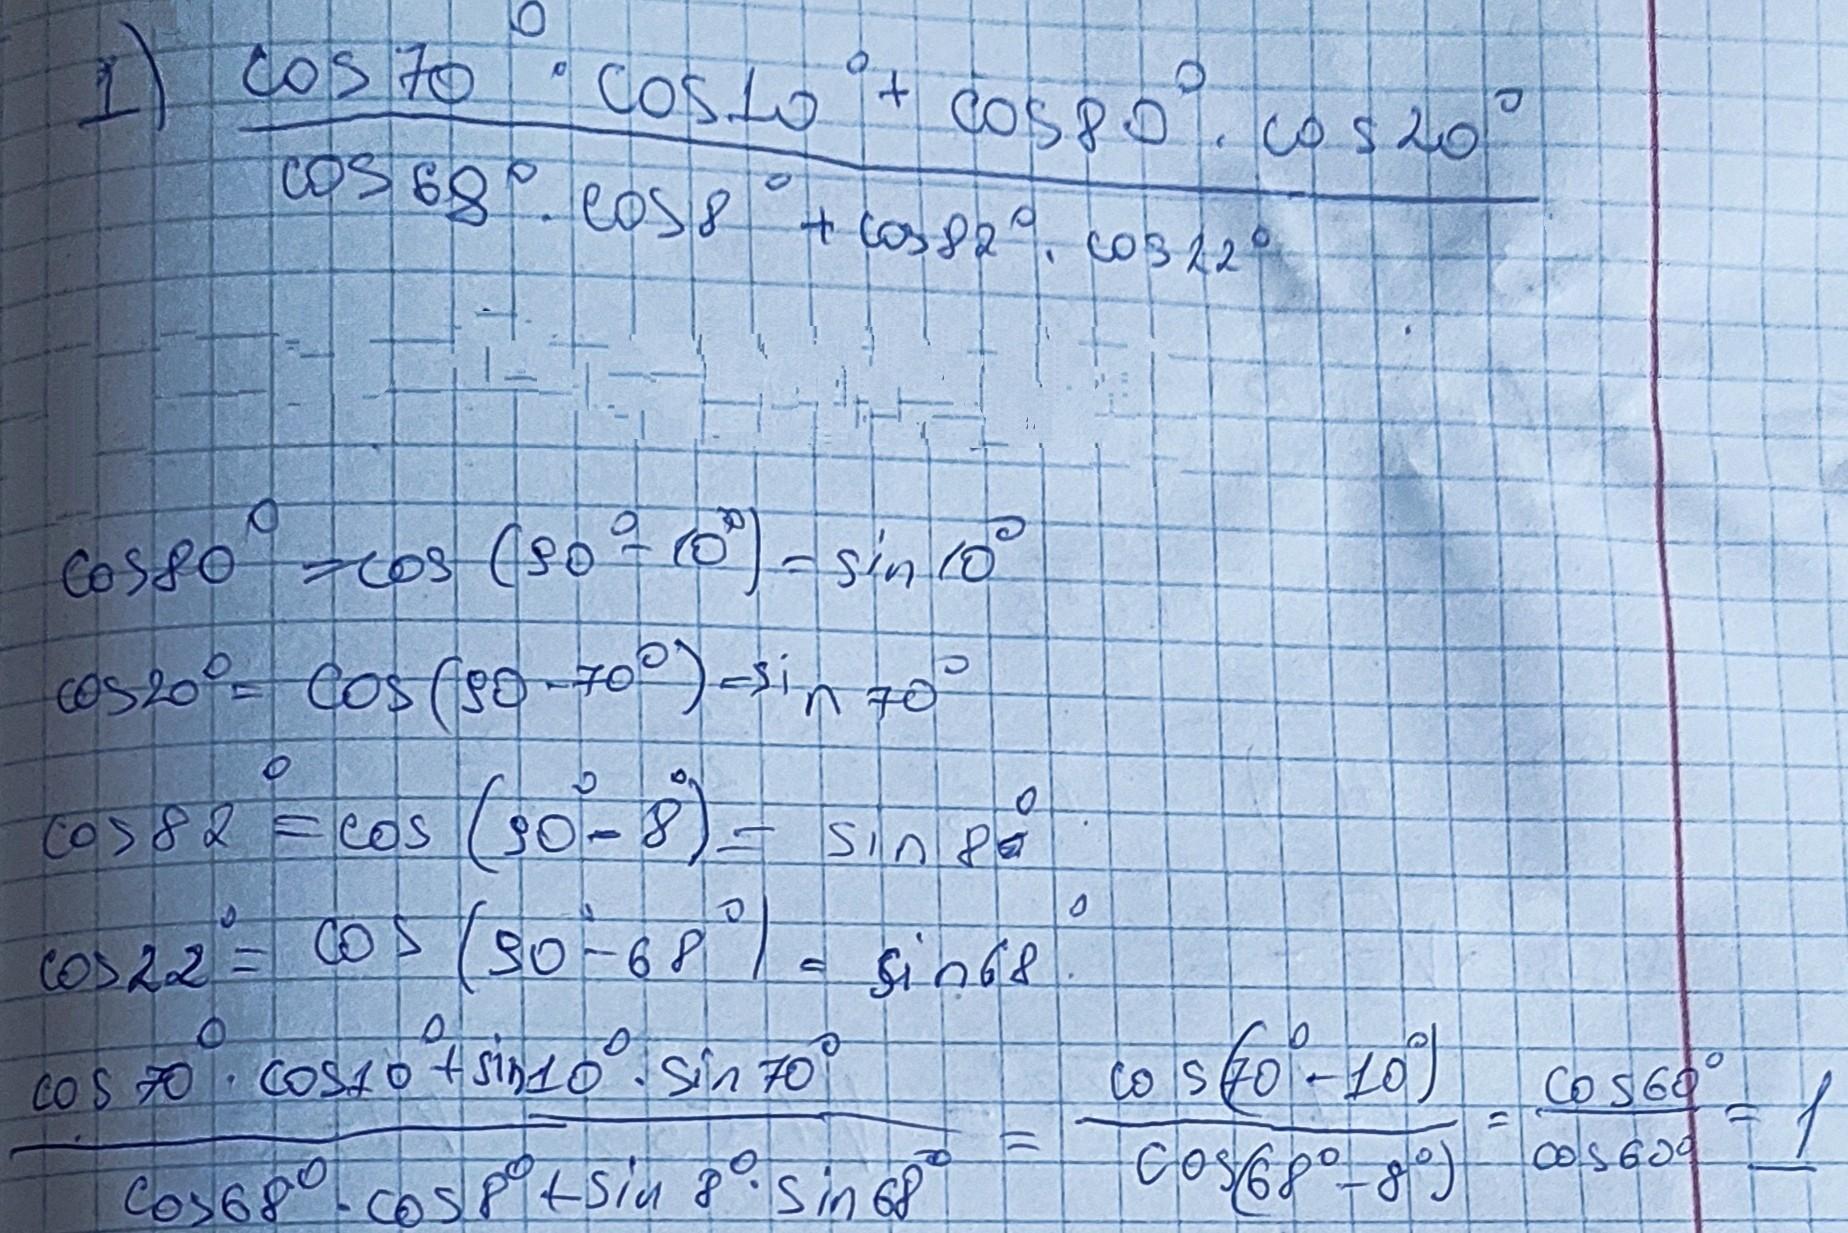 1) cos 70° · cos 10° + cos 80° · cos 20°
cos 68° · cos 8° + cos 82° · cos 22°
cos 80° = cos (90° - 10°) = sin 10°
cos 20° = cos (90 - 70°) = sin 70°
cos 82° = cos (90° - 8°) = sin 8°
cos 22° = cos (90° - 68°) = sin 68°
cos 70° · cos 10° + sin 10° · sin 70° = cos(70° - 10°) = cos 60° = 1
cos 68° · cos 8° + sin 8° · sin 68° cos(68° - 8°) cos 60°